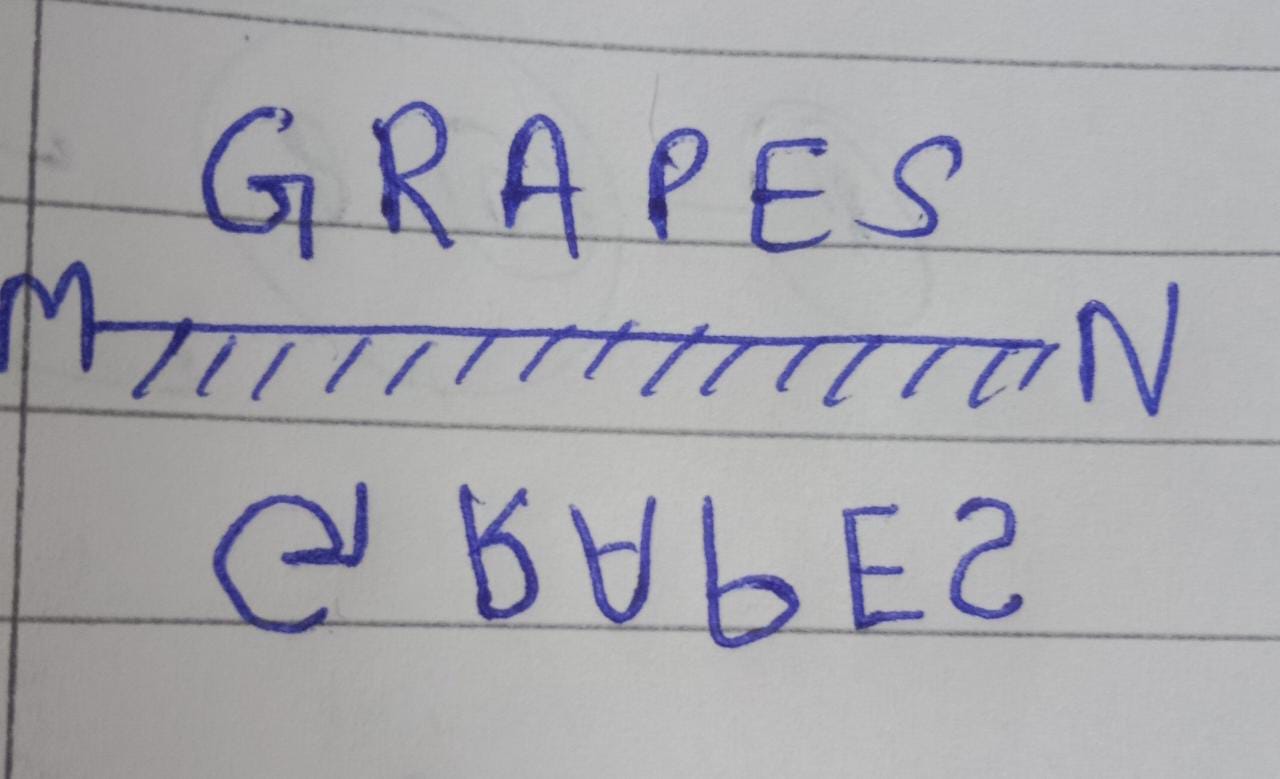 GRAPES
M N
GRAPES